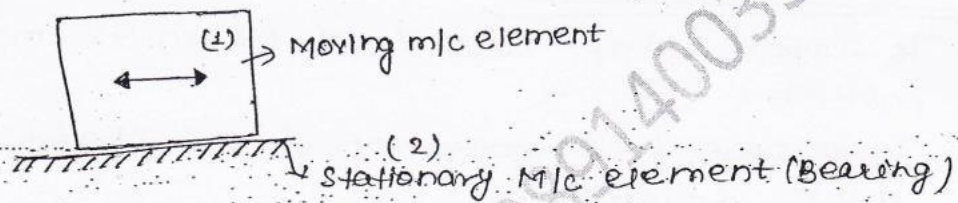 (1) Moving m/c element
(2)
Stationary M/c element (Bearing)